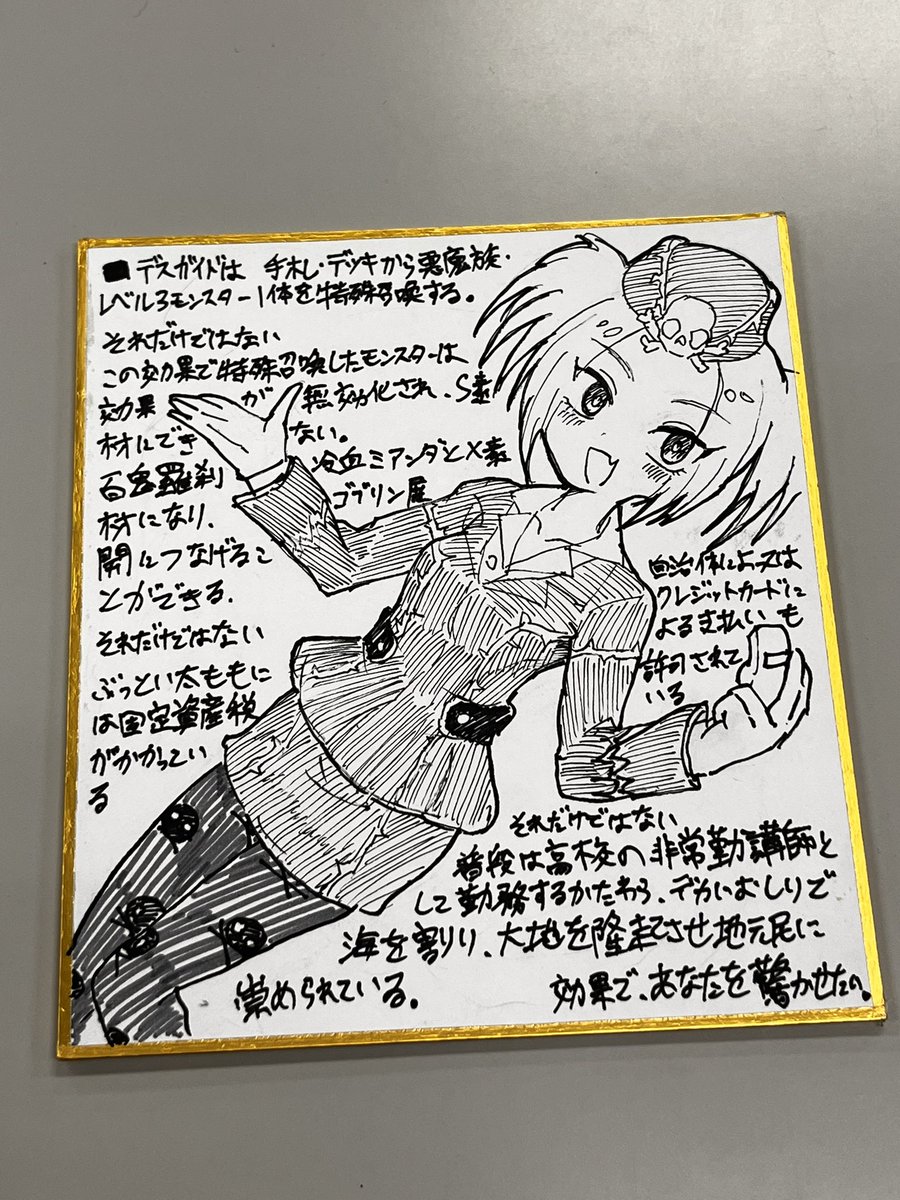 ■デスガイドは 手札・デッキから悪魔族・
レベル3モンスター1体を特殊召喚する。
それだけではない
この効果で特殊召喚したモンスターは
効果が無効化され、S素
材にできない。
百鬼羅刹 冷血ミアンダとX素
材になり、ゴブリン展
開につなげるこ
とができる.
それだけではない
ぶっとい太ももに
は固定資産税
がかかってい
る
自治体によっては
クレジットカードに
よる支払いも
許可されて
いる
それだけではない
普段は高校の非常勤講師と
して勤務するかたわら、デカいおしりで
海を割り、大地を隆起させ地元民に
崇められている。
効果で、あなたを驚かせたの。